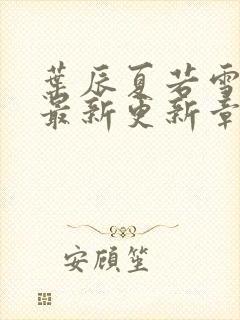 葉辰夏若雪
最新更新章
安頎笙